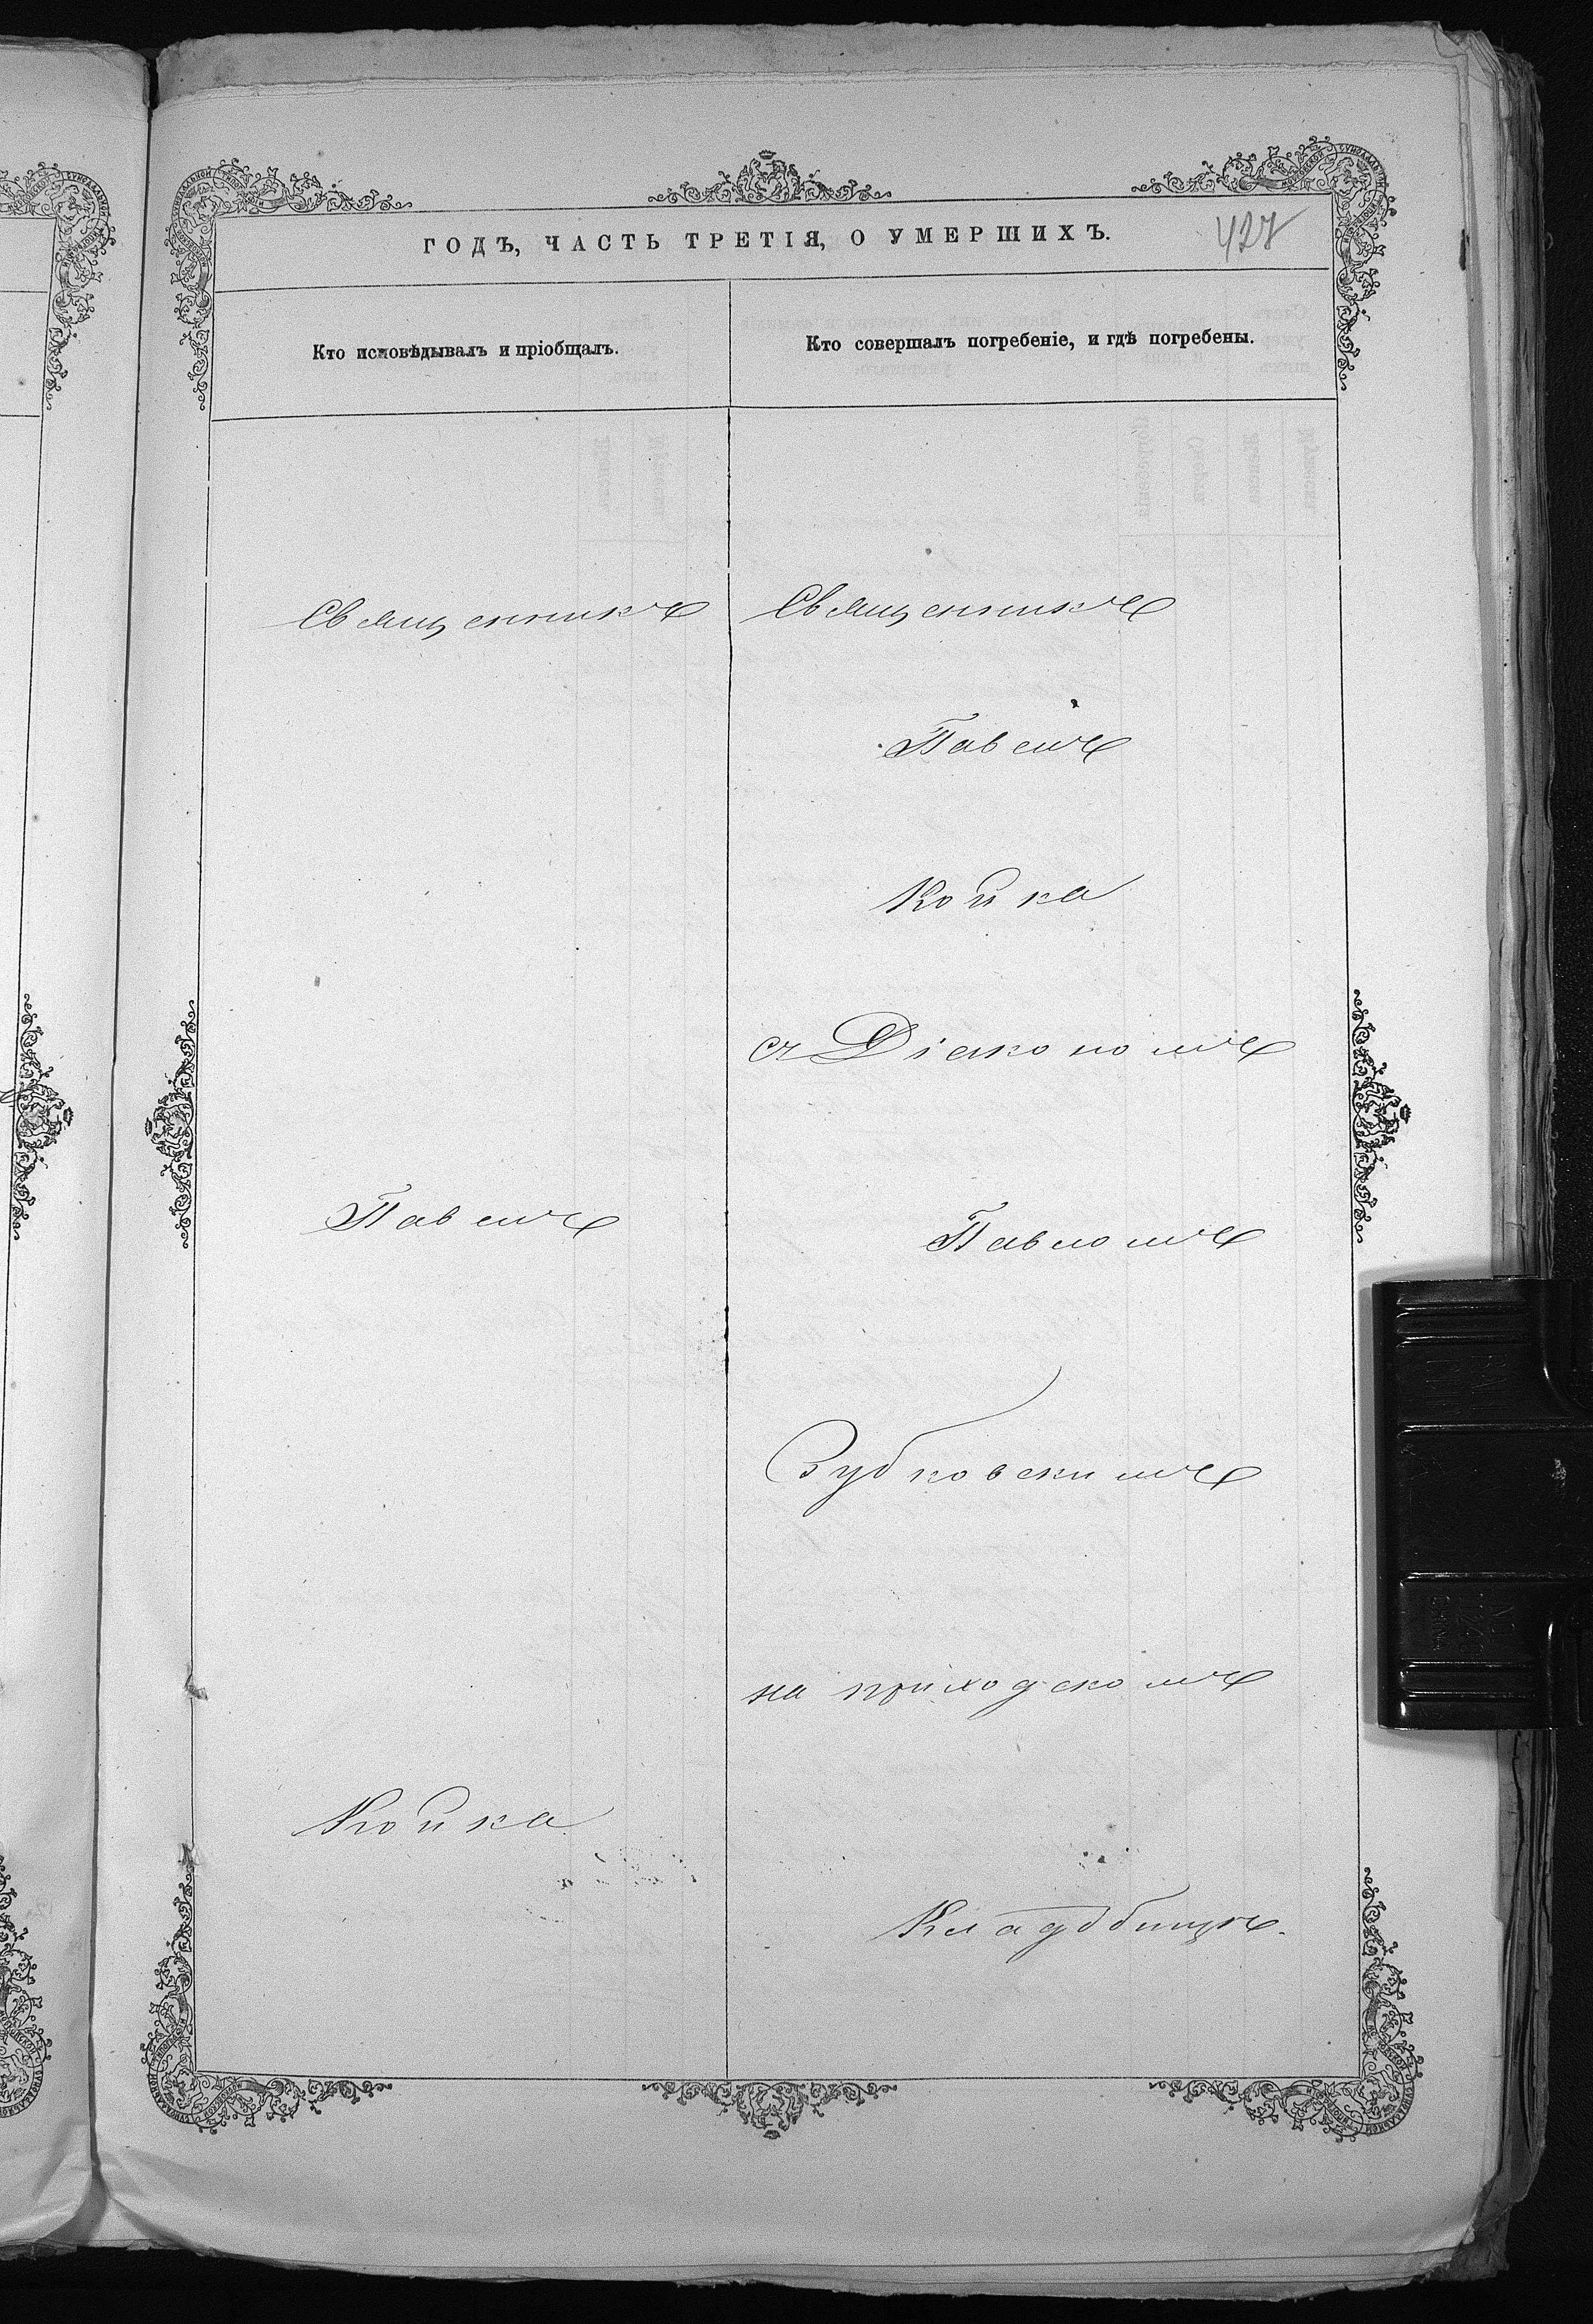 ГОДЪ, ЧАСТЬ ТРЕТІЯ, О УМЕРШИХЪ.
427
Кто исповѣдывалъ и пріобщалъ.
Кто совершалъ погребеніе, и гдѣ погребены.
Священникъ
Павелъ
Койка
Священникъ
Павелъ
Койка
съ Діакономъ
Павломъ
Зубковскимъ
на приходскомъ
Кладбищѣ.